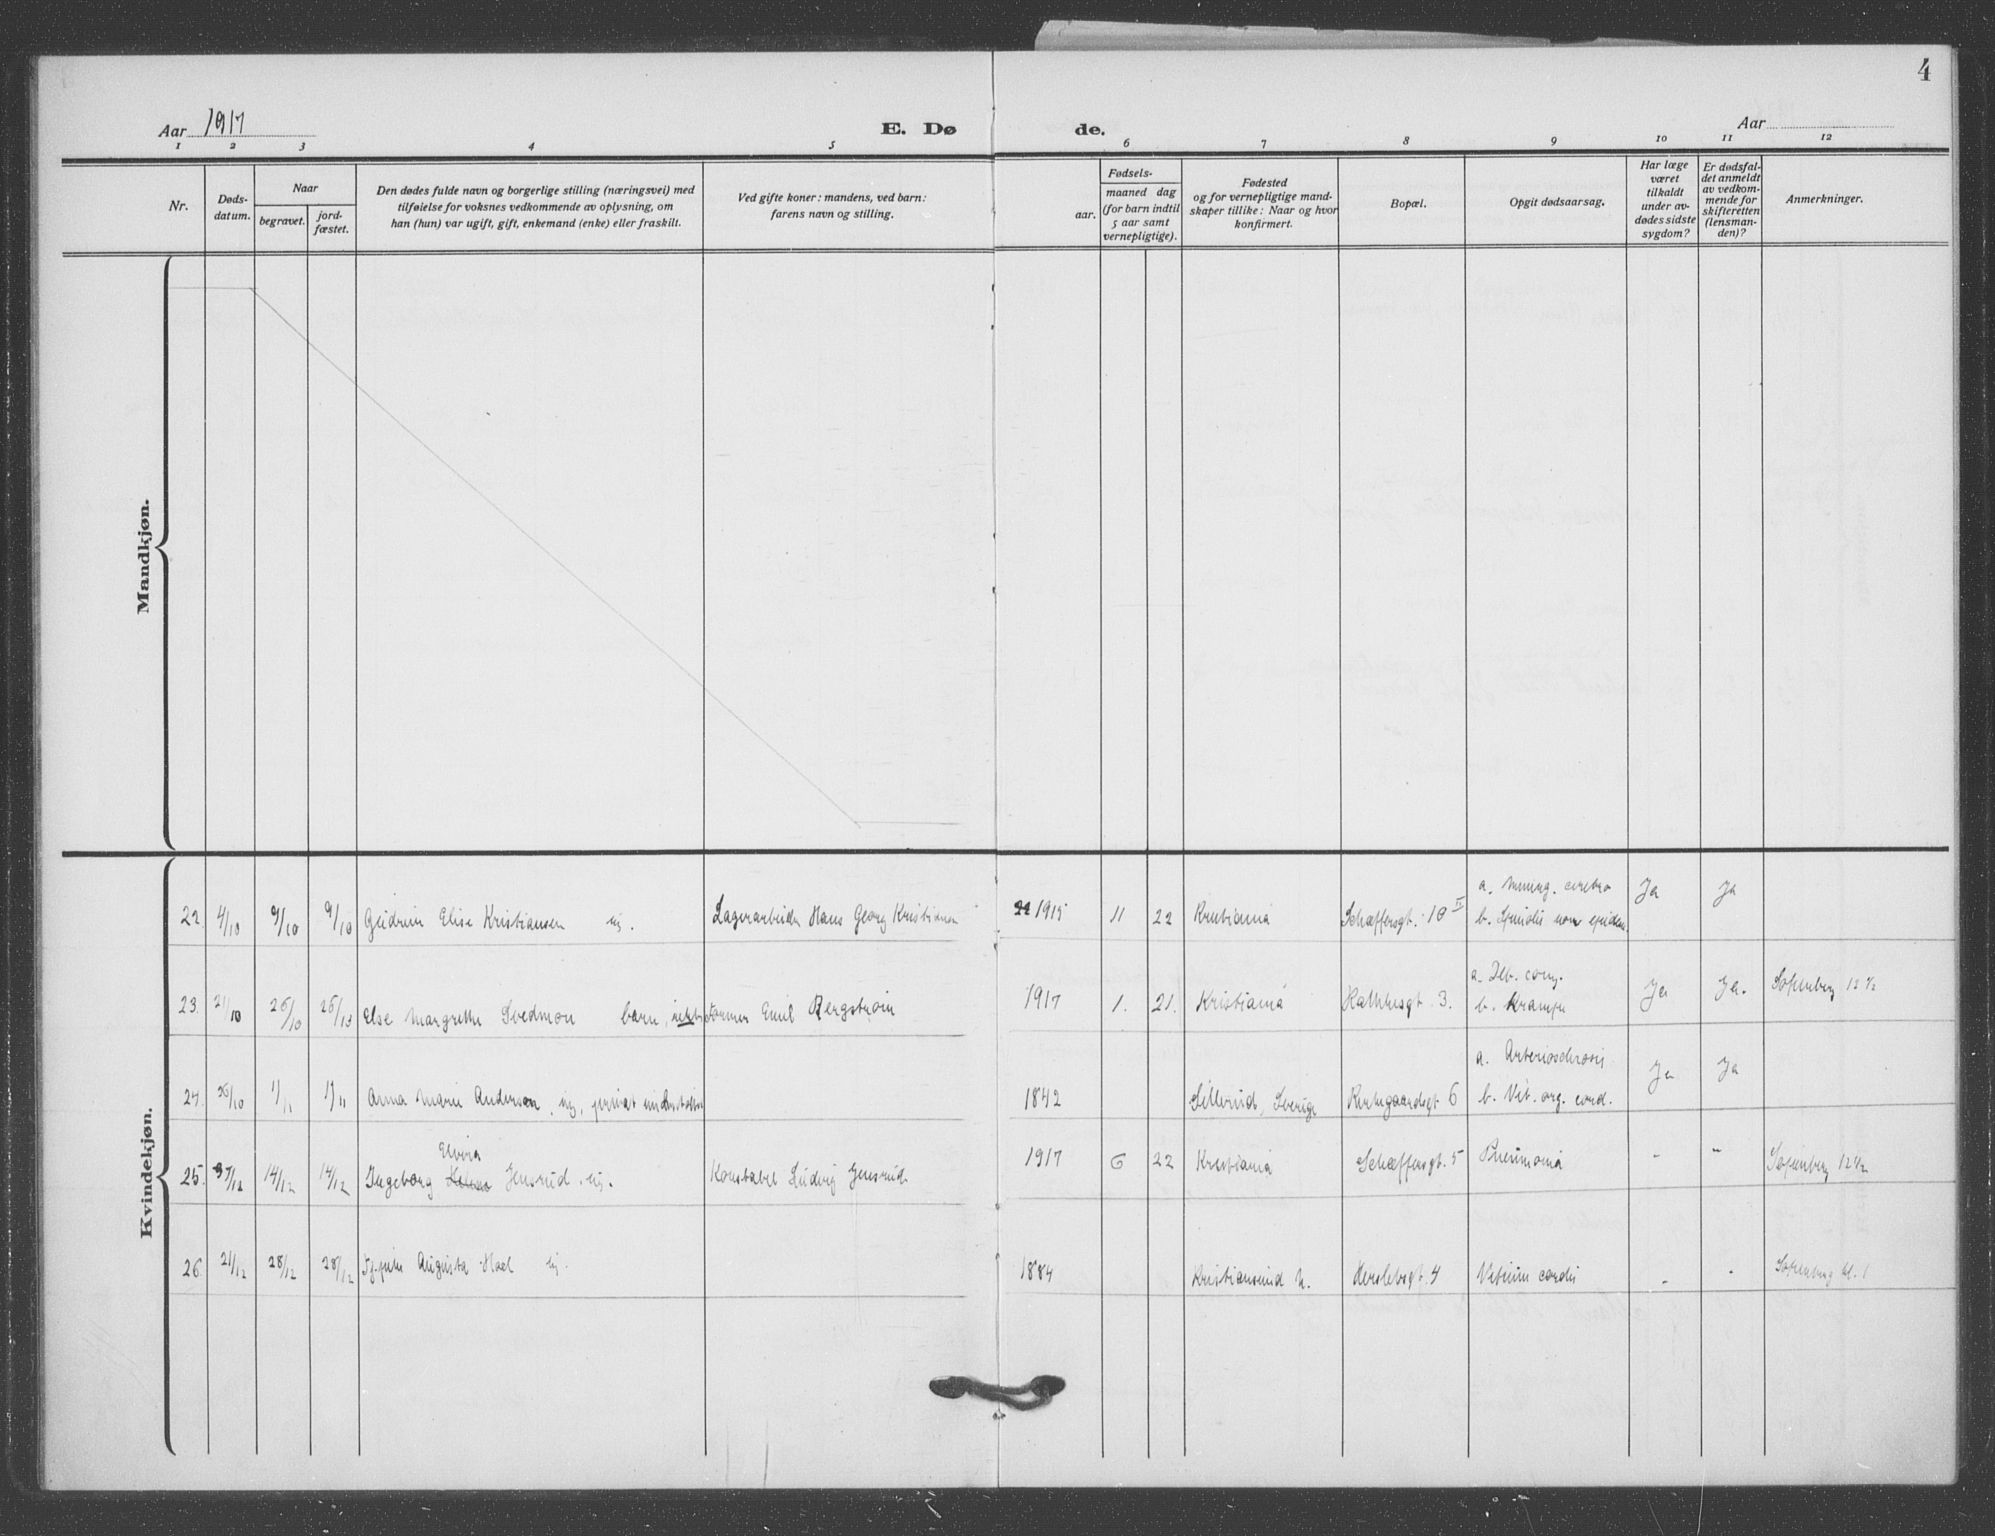 4
Aar 1917
E. Dø
de.
Aar
1 2 3 4 5 6 7 8 9 10 11 12
Nr.
Døds-
datum.
Naar
begravet.
jord-
fæstet.
Den dødes fulde navn og borgerlige stilling (næringsvei) med
tilføielse for voksnes vedkommende av oplysning, om
han (hun) var ugift, gift, enkemand (enke) eller fraskilt.
Ved gifte koner: mandens, ved barn:
farens navn og stilling.
Fødsels-
aar.
maaned dag
(for barn indtil
5 aar samt
vernepligtige).
Fødested
og for vernepligtige mand-
skaper tillike: Naar og hvor
konfirmert.
Bopæl.
Opgit dødsaarsag.
Har læge
været
tilkaldt
under av-
dødes sidste
sygdom?
Er dødsfal-
det anmeldt
av vedkom-
mende for
skifteretten
(lensman-
den)?
Anmerkninger.
Mandkjøn.
Kvindekjøn.
22. 4/10 9/10 9/10 Elise Kristiansen ug. Lagerarbeider Hans Georg Kristiansen 1915 11 22 Kristiania Schæffersgt. 10 II a. Mening. cerebro Ja Ja
b. Spinalis non epidem
23. 21/10 26/10 26/10 Else Margrethe barn, Former Emil Bergstrøm 1917 1. 21. Kristiania Rathkesgt. 3. a. Deb. cong. Ja Ja. Sofienberg 12 1/2
b. Krampe
24. 26/10 1/11 1/11 Anna Marie Andersen, ug, privat understøttet 1842 Sillerud, Sverige Kirkegaardsgt 6 a. Arteriosclerosis Ja Ja
b. Vit. org. cord.
Elvira
25. 7/12 14/12 14/12 Ingeborg Jensrud. ug. Konstabel Ludvig Jensrud. 1917 6 22 Kristiania Schæffersgt. 5 Pneumonia - - Sofienberg 12 1/2
26. 21/12 28/12 28/12 Augusta Hoel ug. 1884 Kristiansund N. Herslebsgt. 4 Vitium cordis - - Sofienberg kl. 1